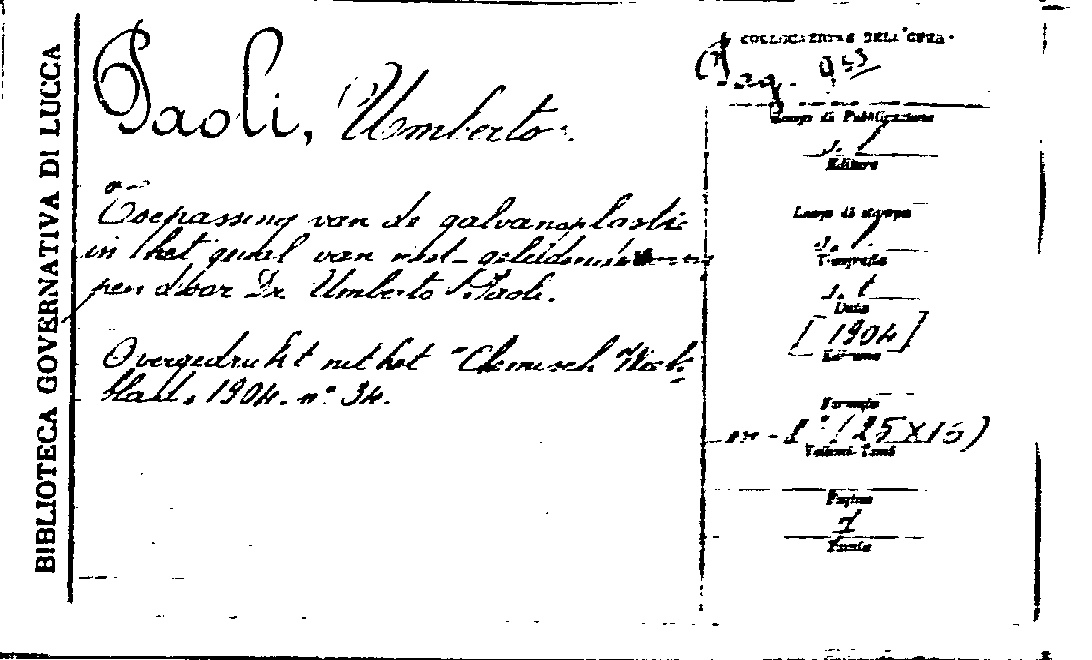 BIBLIOTECA GOVERNATIVA DI LUCCA
Paoli, Umberto.
Toepassing van de galvanoplastic
in het geval van niet-geleidende
pen door Dr. Umberto Paoli.
Overgedrukt uit het "Chemisch Week-
blad, 1904. n° 34.
COLLOCAZIONE DELL'OPERA
953
Luogo di Pubblicazione
s. l.
Editore
Luogo di stampa
s. l.
Tipografia
s. t.
Data
[1904]
Edizione
Formato
in-8° (25X16)
Volumi-Tomi
Pagine
7